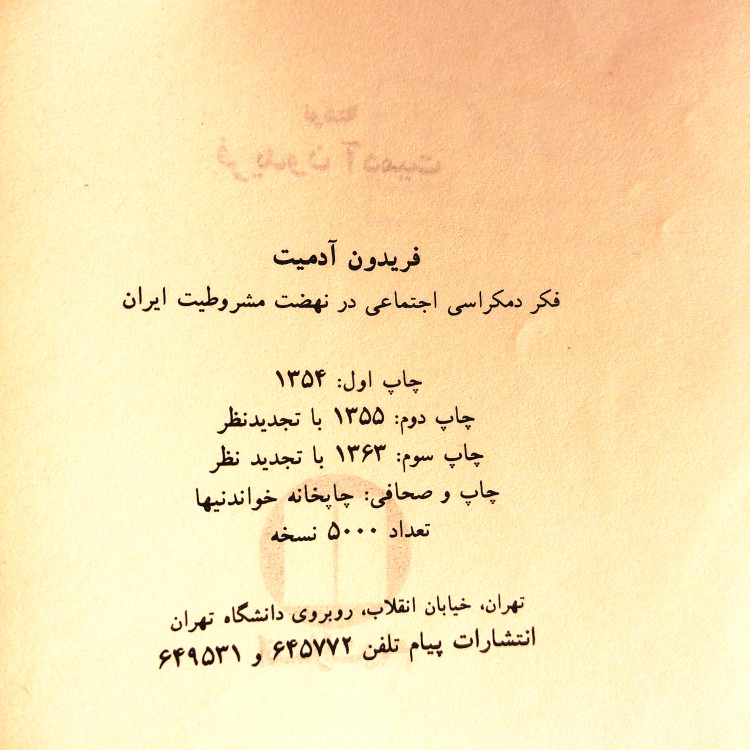 فریدون آدمیت
فکر دمکراسی اجتماعی در نهضت مشروطیت ایران
چاپ اول: ۱۳۵۴
چاپ دوم: ۱۳۵۵ با تجدیدنظر
چاپ سوم: ۱۳۶۳ با تجدید نظر
چاپ و صحافی: چاپخانه خواندنیها
تعداد ۵۰۰۰ نسخه
تهران، خیابان انقلاب، روبروی دانشگاه تهران
انتشارات پیام تلفن ۶۴۵۷۷۲ و ۶۴۹۵۳۱